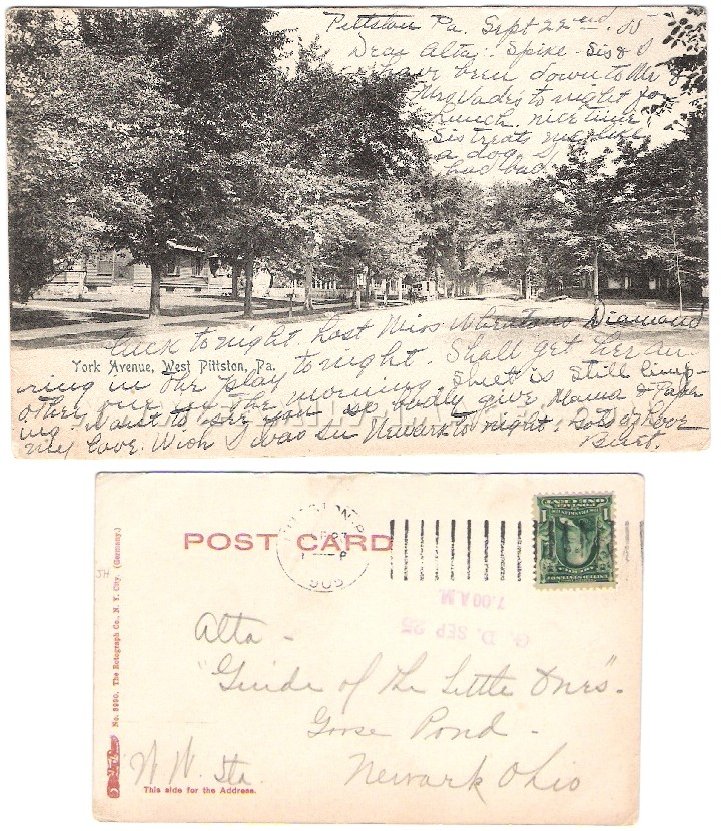 Pittston Pa. Sept 22nd. 05
Dear Alta: Spike - Sis & I
have been down to Mr &
Mrs Wade's to night for
lunch, nice time,
Sis treats me like
a dog.
had bad
luck to night. Lost Miss Wheaton's Diamond
York Avenue, West Pittston, Pa.
ring in the play to night. Shall get her an-
other one in the morning. Suet is still limp-
ing. Want to see you so badly. Give Mama & Papa
my love. Wish I was in Newark to night. Lots of Love
Burt.
POST CARD
1905
G. D. SEP 25
7.00 A.M.
Alta -
"Guide of the Little Ones".
Goose Pond -
Newark Ohio
W. W. Sta.
This side for the Address.
No. 8990. The Rotograph Co., N. Y. City. (Germany.)
JH